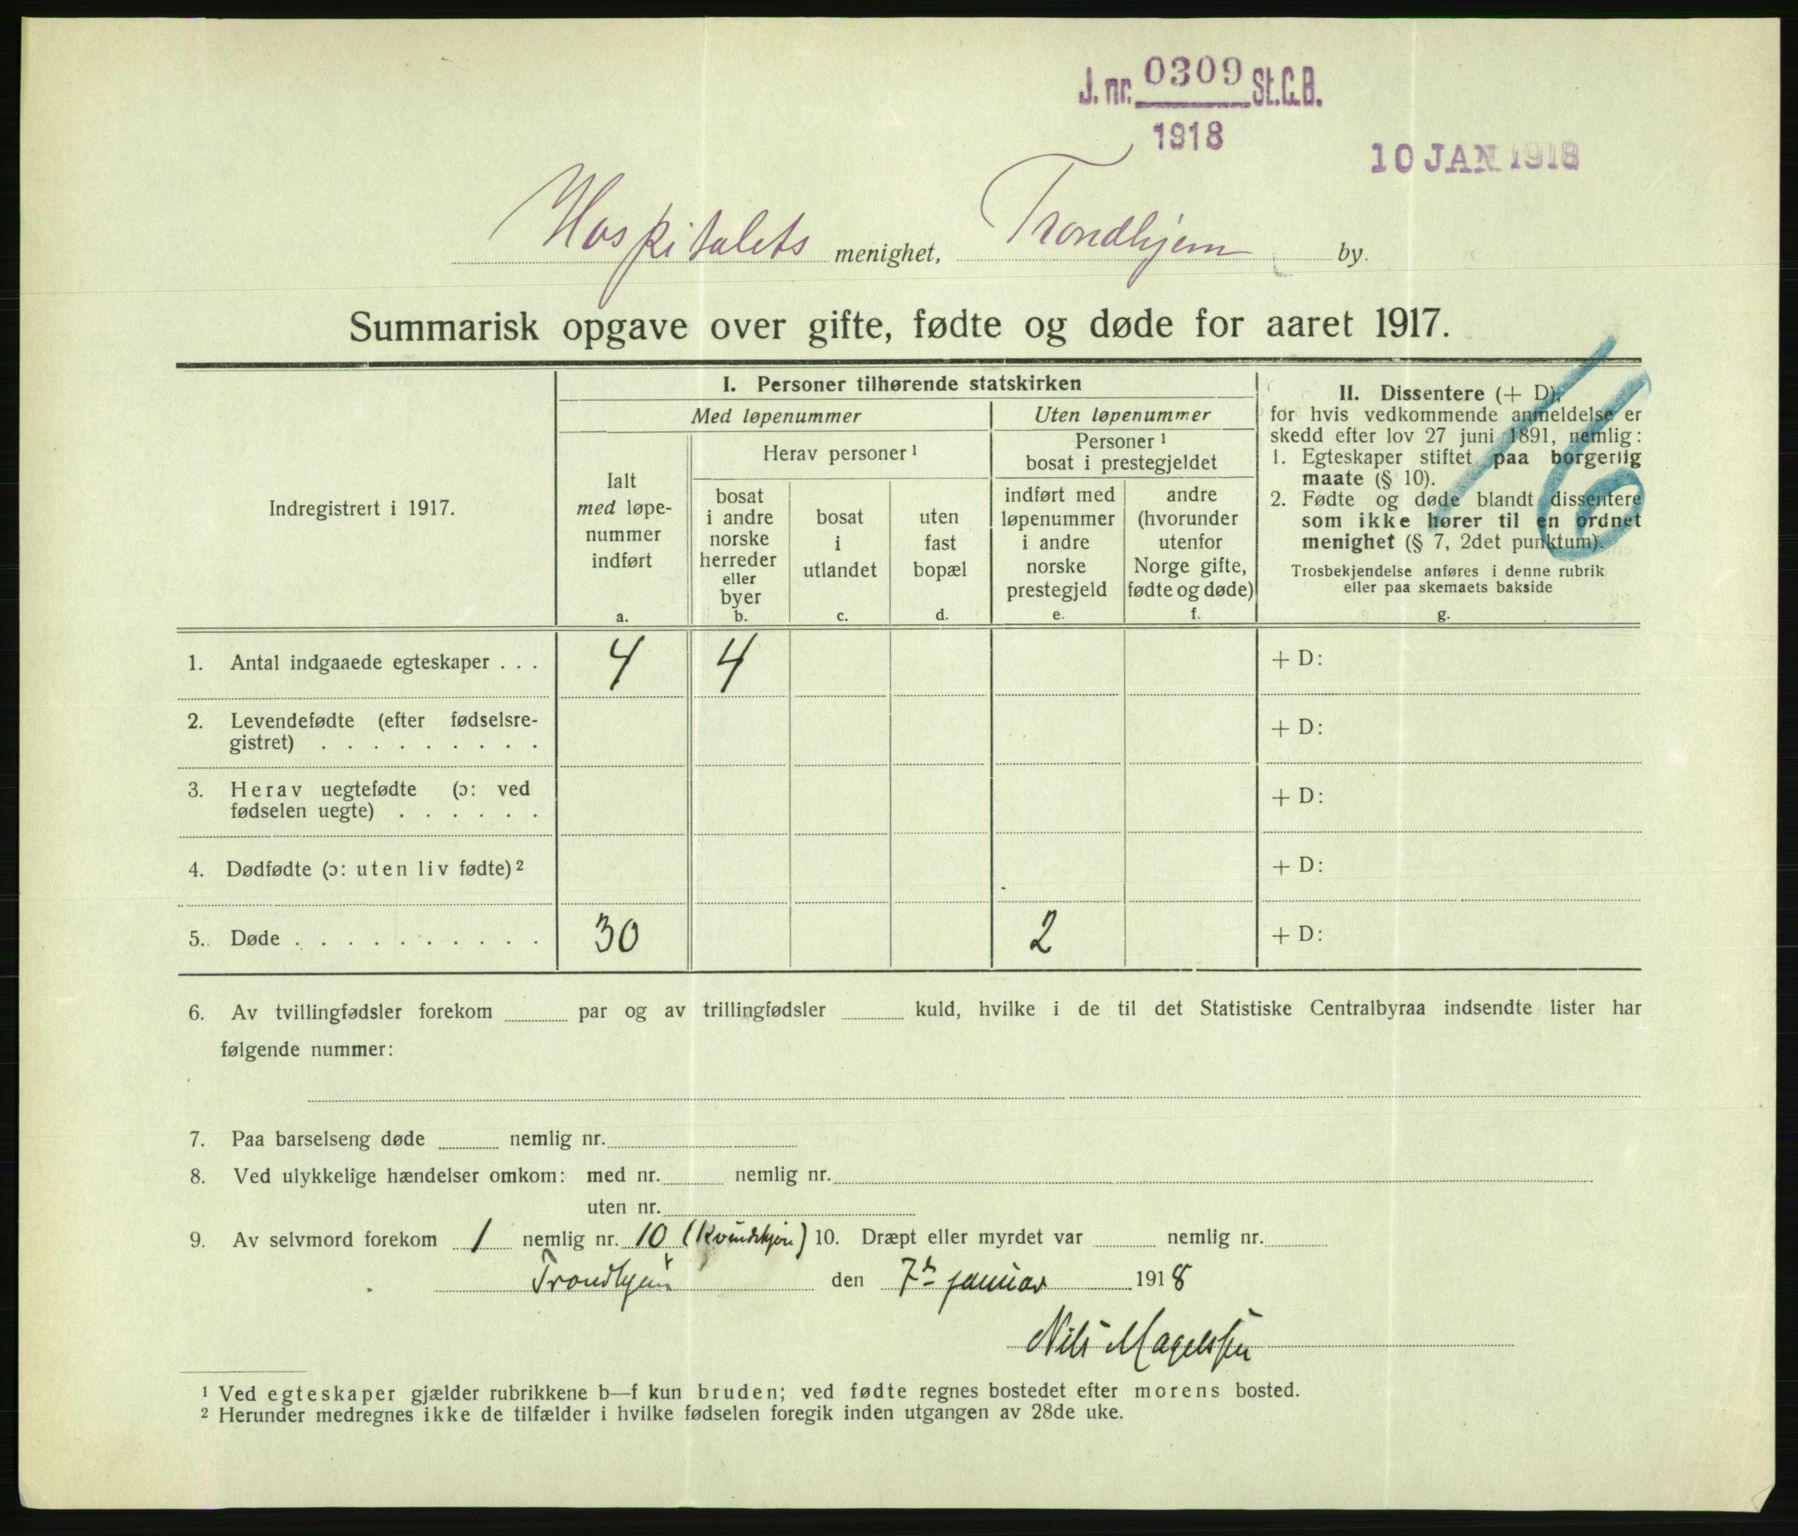 J. nr. 0309 St.C.B.
1918
10 JAN 1918
Hospitalets menighet, Trondhjem by.
Summarisk opgave over gifte, fødte og døde for aaret 1917.
16
Indregistrert i 1917.
I. Personer tilhørende statskirken
Med løpenummer
Uten løpenummer
Ialt
med løpe-
nummer
indført
a.
Herav personer ¹
bosat
i andre
norske
herreder
eller
byer
b.
bosat
i
utlandet
c.
uten
fast
bopæl
d.
Personer ¹
bosat i prestegjeldet
indført med
løpenummer
i andre
norske
prestegjeld
e.
andre
(hvorunder
utenfor
Norge gifte,
fødte og døde)
f.
II. Dissentere (+ D),
for hvis vedkommende anmeldelse er
skedd efter lov 27 juni 1891, nemlig:
1. Egteskaper stiftet paa borgerlig
maate (§ 10).
2. Fødte og døde blandt dissentere
som ikke hører til en ordnet
menighet (§ 7, 2det punktum).
Trosbekjendelse anføres i denne rubrik
eller paa skemaets bakside
g.
1. Antal indgaaede egteskaper . . . 4 4 + D:
2. Levendefødte (efter fødselsre-
gistret) . . . . . . . . . + D:
3. Herav uegtefødte (ɔ: ved
fødselen uegte) . . . . . . + D:
4. Dødfødte (ɔ: uten liv fødte) ² + D:
5. Døde . . . . . . . . . . 30 2 + D:
6. Av tvillingfødsler forekom par og av trillingfødsler kuld, hvilke i de til det Statistiske Centralbyraa indsendte lister har
følgende nummer:
7. Paa barselseng døde nemlig nr.
8. Ved ulykkelige hændelser omkom: med nr. nemlig nr.
uten nr.
9. Av selvmord forekom 1 nemlig nr. 10 (Kvindekjøn) 10. Dræpt eller myrdet var nemlig nr.
Trondhjem den 7de januar 1918
Nils Magelssen
¹ Ved egteskaper gjælder rubrikkene b—f kun bruden; ved fødte regnes bostedet efter morens bosted.
² Herunder medregnes ikke de tilfælder i hvilke fødselen foregik inden utgangen av 28de uke.